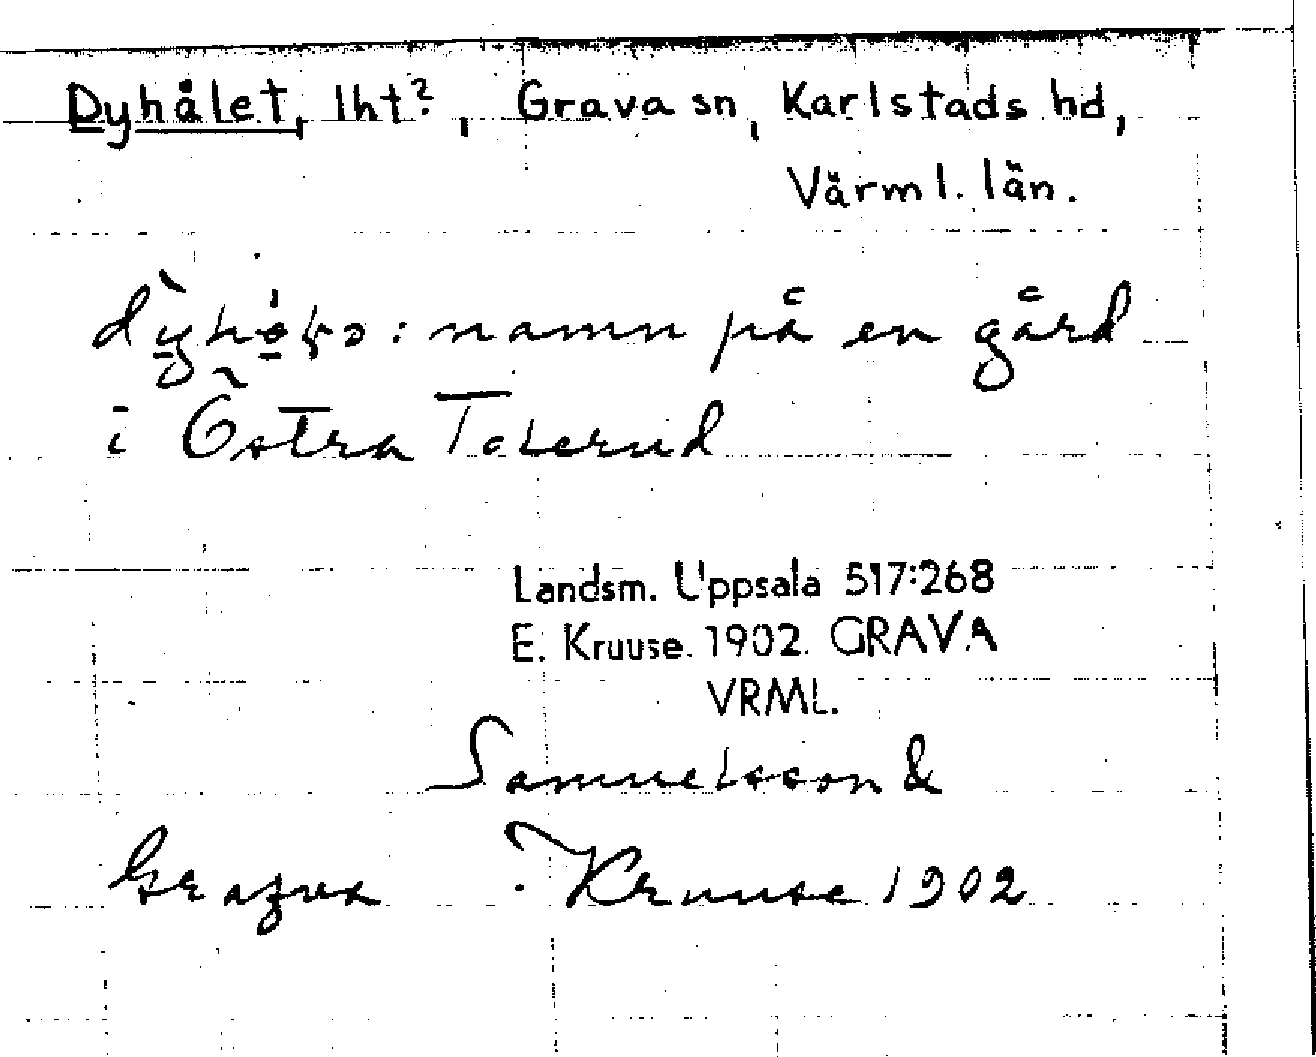 Dyhålet, lht?, Grava sn, Karlstads hd,
Värml. län.
: namn på en gård
i Östra Tolerud
Landsm. Uppsala 517:268
E. Kruuse. 1902. GRAVA
VRML.
Samuelsson &
Grafva Kruuse 1902